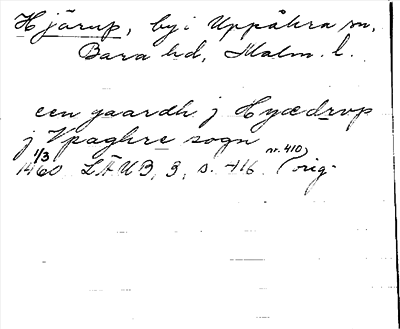 Hjärup, by i Uppåkra sn,
Bara hd, Malm. l.
een gaardh j Hyædrop
j Vpaghre sogn
1/3 nr. 410)
1460 LÄUB, 3, s. 416. (orig.